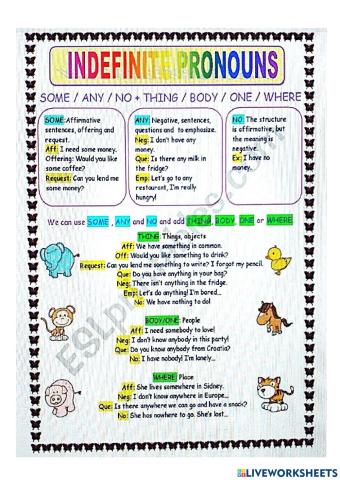 INDEFINITE PRONOUNS
SOME / ANY / NO + THING / BODY / ONE / WHERE
SOME: Affirmative
sentences, offering and
request.
Aff: I need some money.
Offering: Would you like
some coffee?
Request: Can you lend me
some money?
ANY Negative, sentences,
questions and to emphasize.
Neg: I don't have any
money.
Que: Is there any milk in
the fridge?
Emp: Let's go to any
restaurant, I'm really
hungry!
NO: The structure
is affirmative, but
the meaning is
negative.
Ex: I have no
money.
We can use SOME , ANY and NO and add THING, BODY, ONE or WHERE
THING: Things, objects
Aff: We have something in common.
Off: Would you like something to drink?
Request: Can you lend me something to write? I forgot my pencil.
Que: Do you have anything in your bag?
Neg: There isn't anything in the fridge.
Emp: Let's do anything! I'm bored...
No: We have nothing to do!
BODY/ONE: People
Aff: I need somebody to love!
Neg: I don't know anybody in this party!
Que: Do you know anybody from Croatia?
No: I have nobody! I'm lonely...
WHERE: Place
Aff: She lives somewhere in Sidney.
Neg: I don't know anywhere in Europe...
Que: Is there anywhere we can go and have a snack?
No: She has nowhere to go. She's lost...
LIVEWORKSHEETS